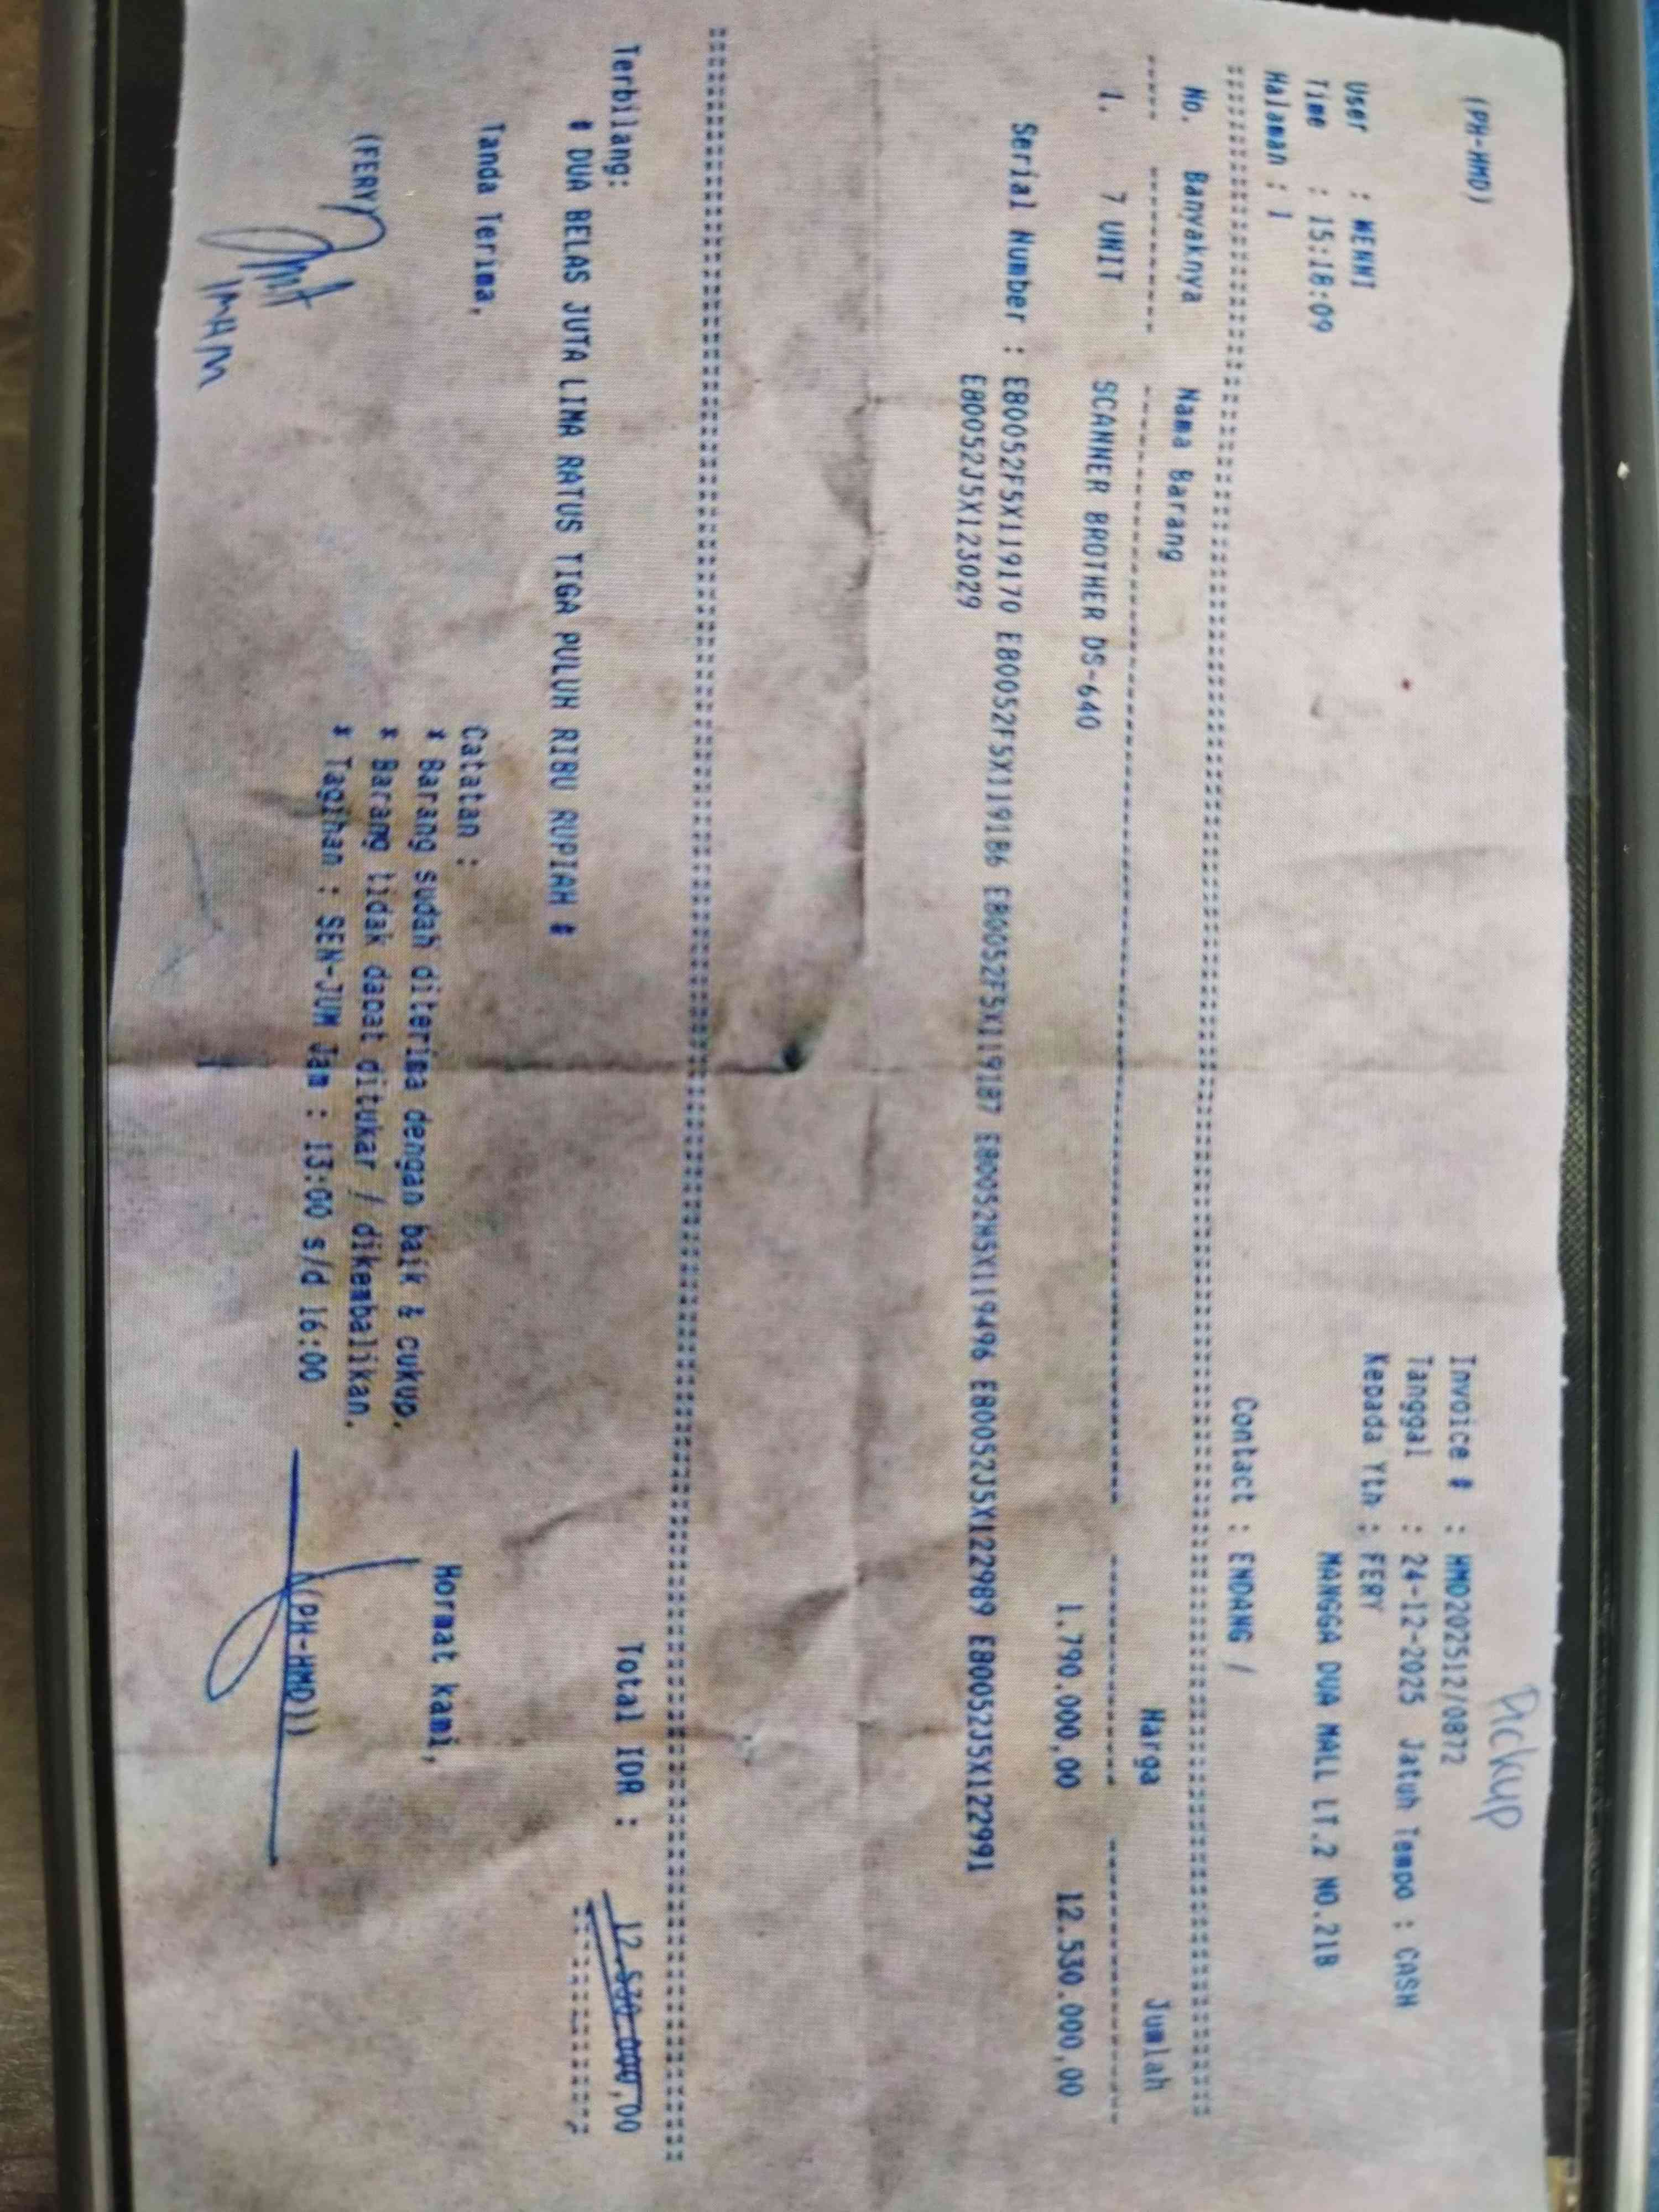 Pickup
(PH-HMD)
Invoice # : HMD202512/0872
Tanggal : 24-12-2025 Jatuh Tempo : CASH
Kepada Yth : FERY
MANGGA DUA MALL LT.2 NO.21B
User : WENNI
Time : 15:18:09
Halaman : 1
Contact : ENDANG /
No. Banyaknya Nama Barang Harga Jumlah
1. 7 UNIT SCANNER BROTHER DS-640 1.790.000,00 12.530.000,00
Serial Number : E80052F5X119170 E80052F5X119186 E80052F5X119187 E80052H5X119496 E80052J5X122989 E80052J5X122991
E80052J5X123029
Total IDR : 12.530.000,00
Terbilang:
# DUA BELAS JUTA LIMA RATUS TIGA PULUH RIBU RUPIAH #
Tanda Terima,
Catatan :
* Barang sudah diterima dengan baik & cukup.
* Barang tidak dapat ditukar / dikembalikan.
* Tagihan : SEN-JUM Jam : 13:00 s/d 16:00
Hormat kami,
(FERY)
(PH-HMD))